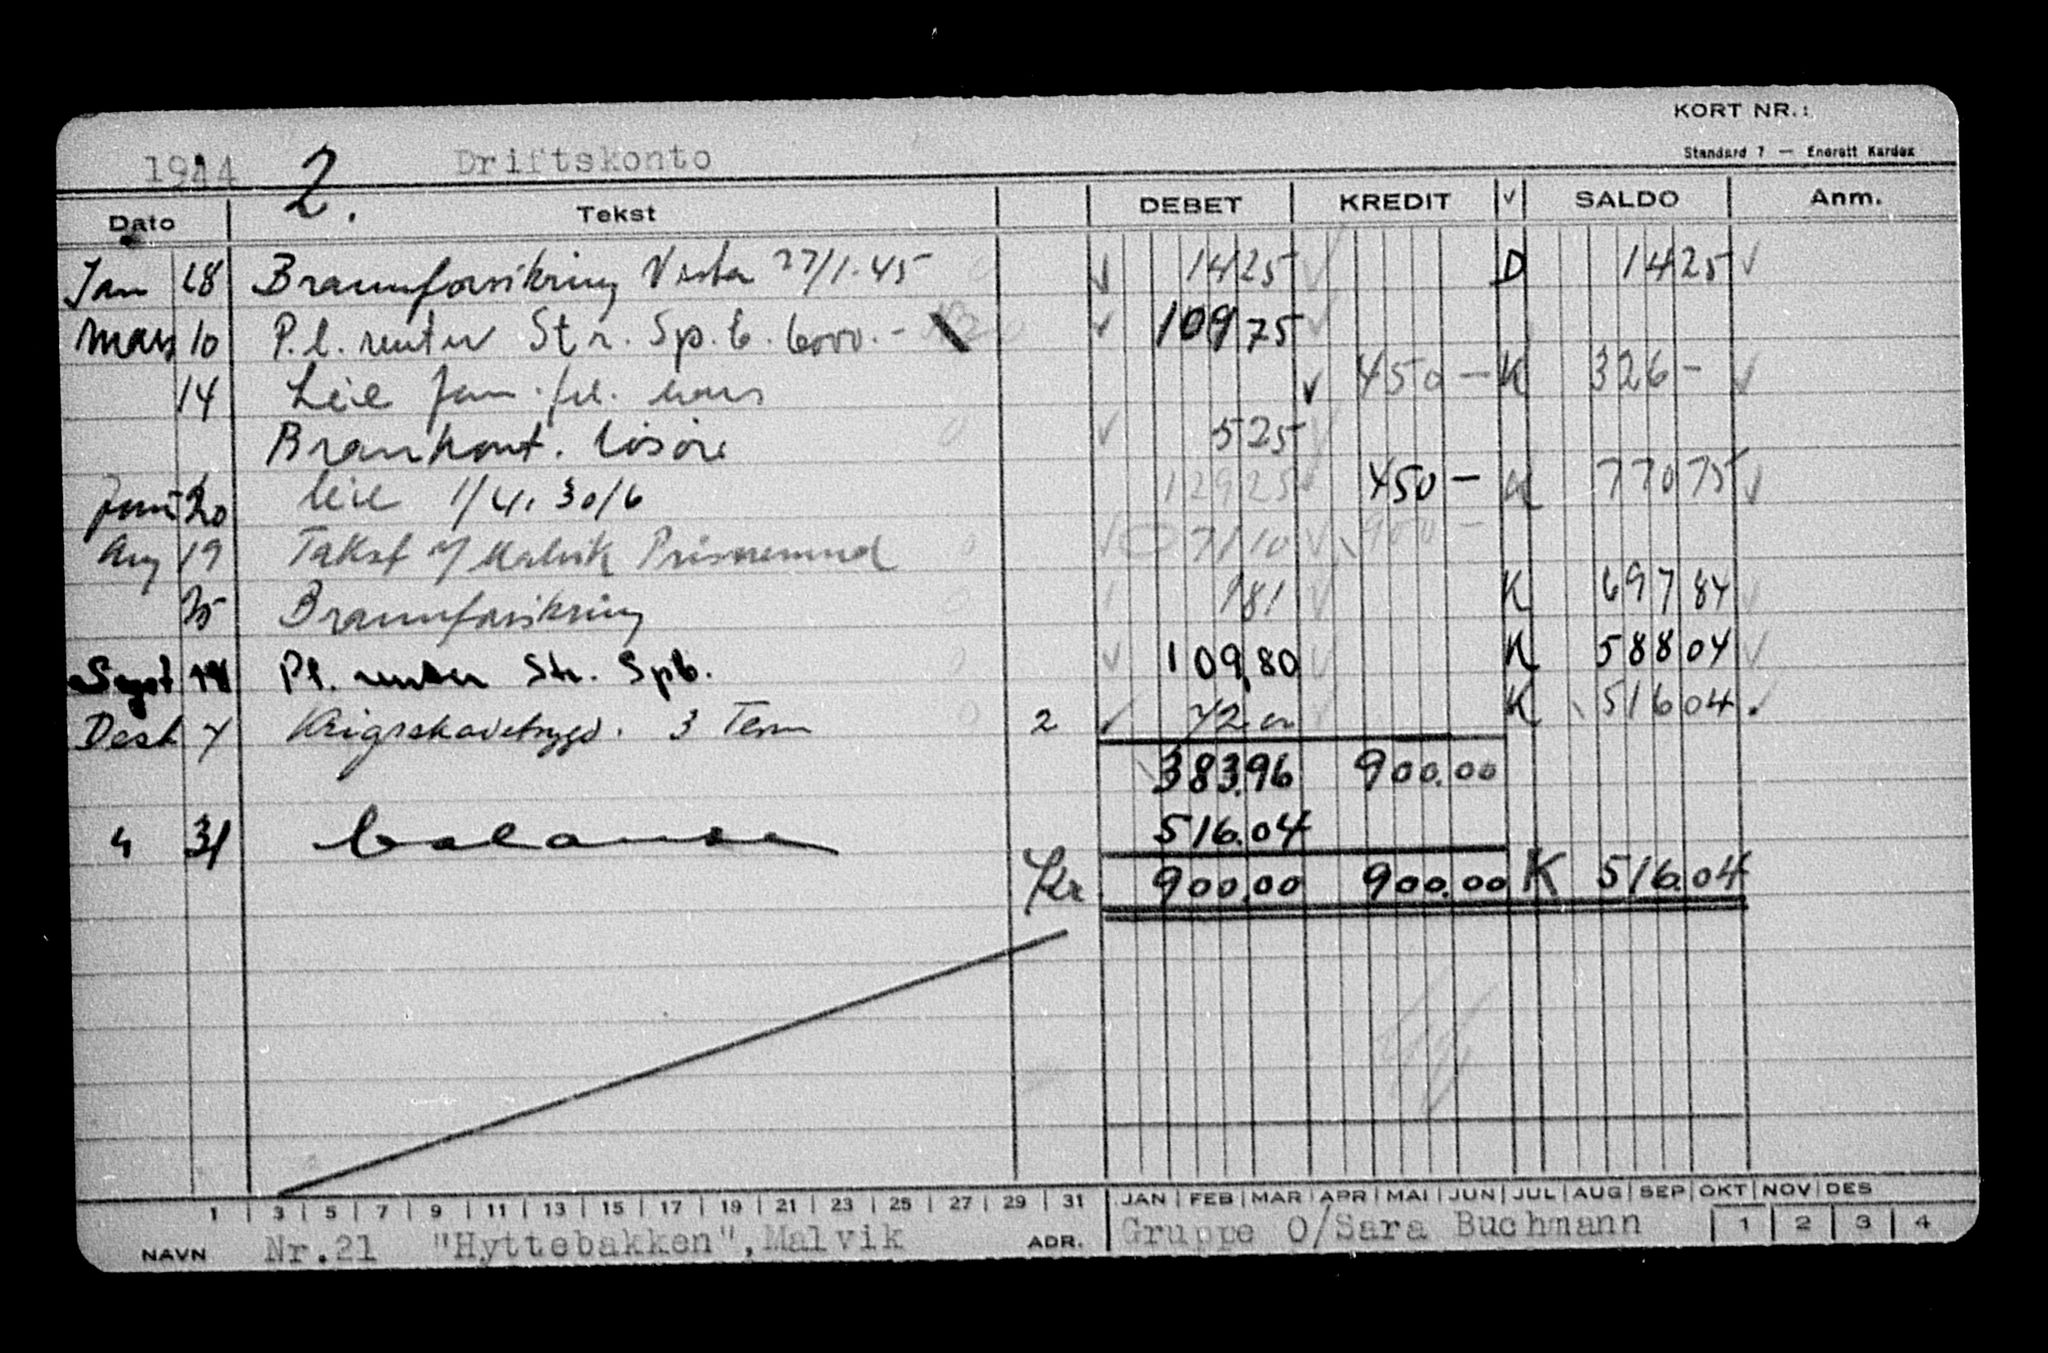 KORT NR.:
1944 2. Driftskonto Standard 7 — Enerett Kardex
Dato Tekst DEBET KREDIT √ SALDO Anm.
Jan 28 Brannforsikring Vesta 27/1-45 √ 14 25 √ D 14 25 √
Mars 10 P.l. renter Str. Sp.b. 6000.- √ 109 75 √
14 Leie jan. feb. mars √ 450 — K 326 - √
Brannkont. løsøre √ 5 25 √
Juni 20 leie 1/4. 30/6 129 25 450 — K 770 75 √
Aug 19 Takst v/ Malvik Prisnemnd √ 71 10 √ 900 -
25 Brannforsikring 1 81 √ K 697 84 √
Sept 18 Pl. renter Str. Spb. √ 109,80 √ K 588 04 √
Des 7 Krigsskadetrygd. 3 Term 2 √ 72.00 √ K 516 04
383.96 900.00
" 31 balanse 516.04
Kr 900.00 900.00 K 516.04
1 3 5 7 9 11 13 15 17 19 21 23 25 27 29 31 JAN FEB MAR APR MAI JUN JUL AUG SEP OKT NOV DES
NAVN Nr.21 "Hyttebakken", Malvik ADR. Gruppe O/Sara Buchmann 1 2 3 4